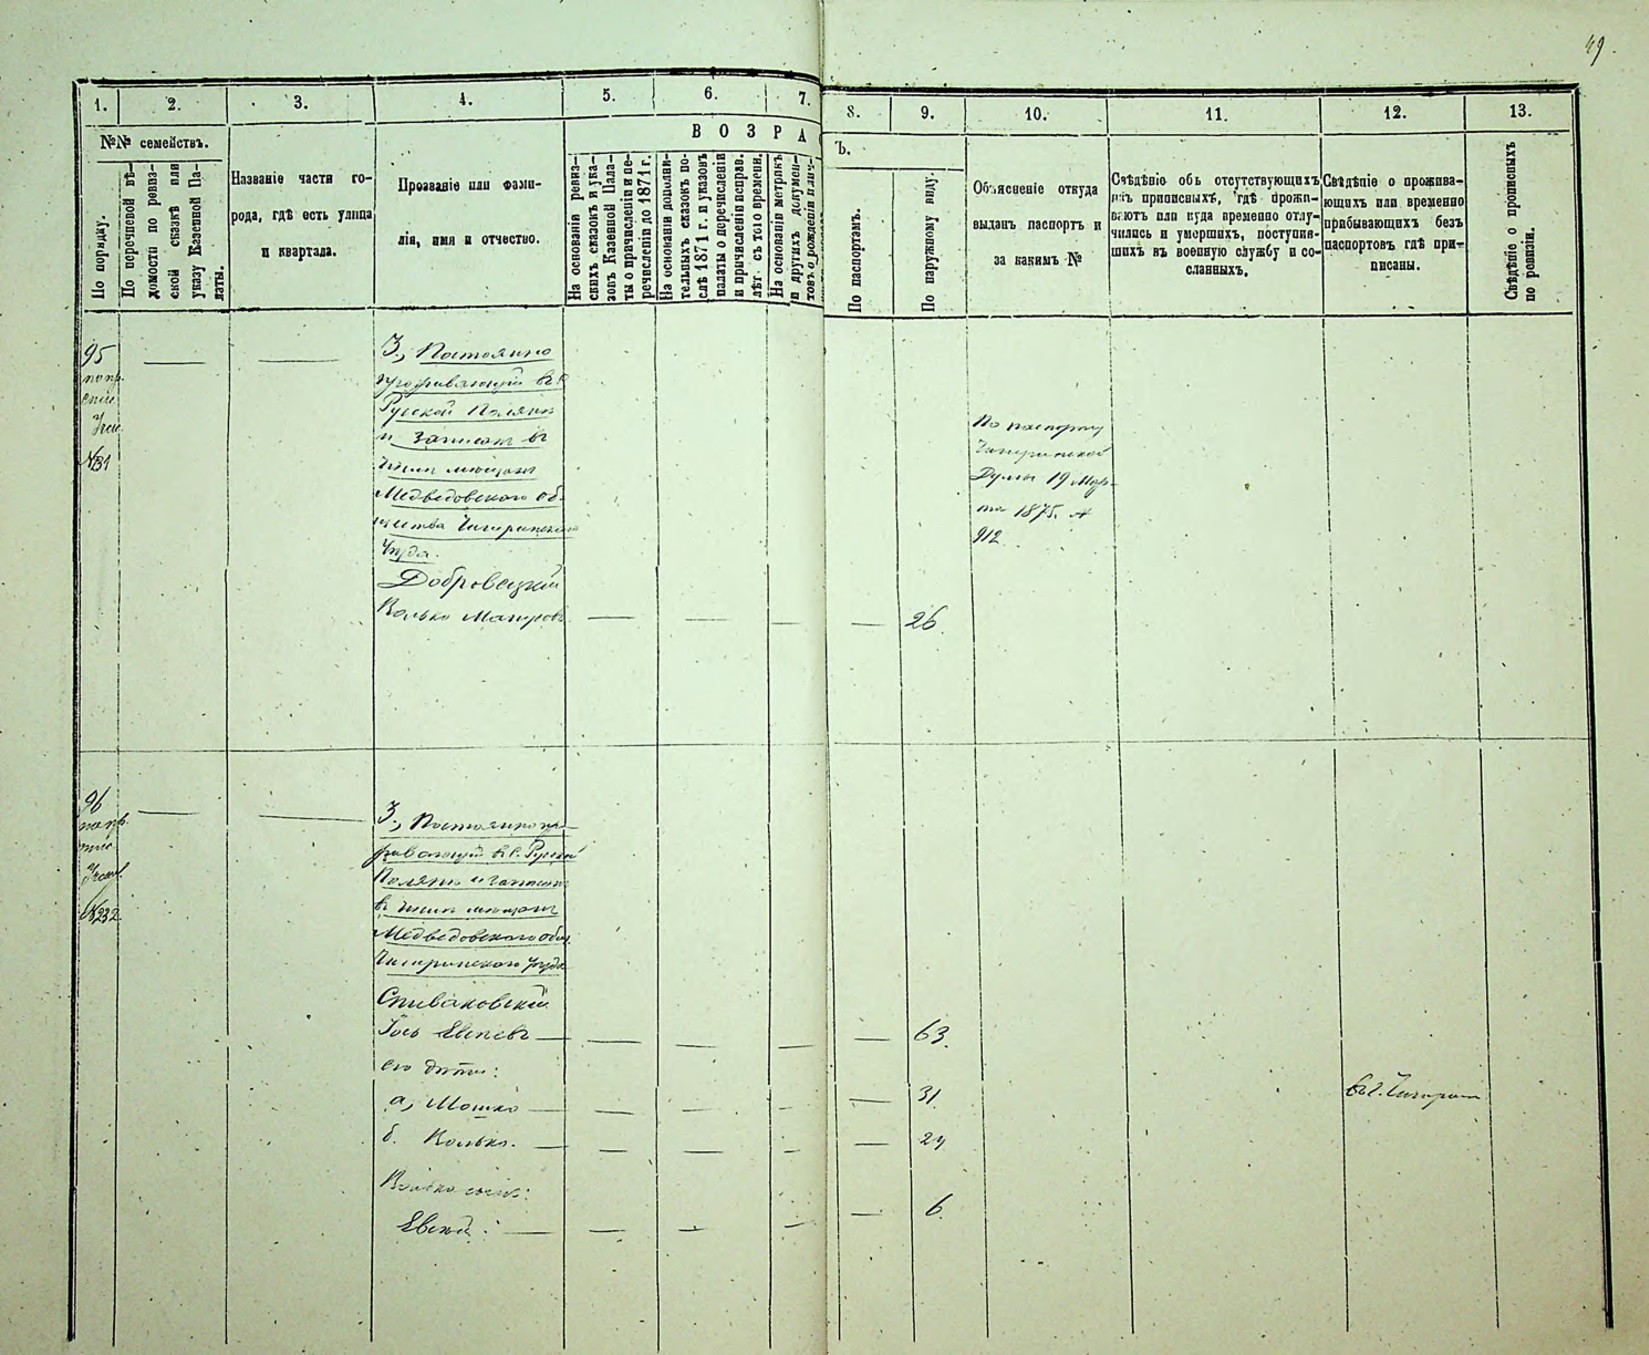 49.
1. 2. 3. 4. 5. 6. 7. 8. 9. 10. 11. 12. 13.
№№ семействъ.
По порядку.
По перечневой вѣ-
домости по ревиз-
ской сказкѣ или
указу Казенной Па-
латы.
Названіе части го-
рода, гдѣ есть улица
и квартала.
Прозваніе или фами-
лія, имя и отчество.
ВОЗРА
Ъ.
На основаніи ревиз-
скихъ сказокъ и ука-
зовъ Казенной Пала-
ты о причисленіи и пе-
речисленіи до 1871 г.
На основаніи дополни-
тельныхъ сказокъ по-
слѣ 1871 г. и указовъ
палаты о перечисленіи
и причисленіи исправ.
лѣт. съ того времени.
На основаніи метрикъ
и другихъ докумен-
товъ о рожденіи
По паспортамъ.
По наружному виду.
Объясненіе откуда
выданъ паспортъ и
за какимъ №
Свѣдѣніе объ отсутствующихъ
изъ приписныхъ, гдѣ прожи-
ваютъ или куда временно отлу-
чились и умершихъ, поступив-
шихъ въ военную службу и со-
сланныхъ.
Свѣдѣніе о прожива-
ющихъ или временно
прибывающихъ безъ
паспортовъ гдѣ при-
писаны.
Свѣдѣніе о прописныхъ
по ревизіи.
95
№31
3., Постоянно
проживающій въ с.
Русской Полянѣ
и записанъ въ
числѣ мѣщанъ
Медведовского об-
щества Чигиринскаго
уѣзда.
Добровецкій
Волько
26.
По паспорту
Чигиринской
Думы 19 Мар-
та 1875. №
912
96
№232
3., Постоянно про-
живающій въ с. Русской
Полянѣ и записанъ
въ числѣ мѣщанъ
Медведовского общ.
Чигиринского уѣзда
Спиваковскій
Іось Евсеевъ
63.
его дѣти:
а, Мошко
31.
въ г. Чигиринѣ
б. Волько.
29
Волька сынъ:
Евсей:
6.